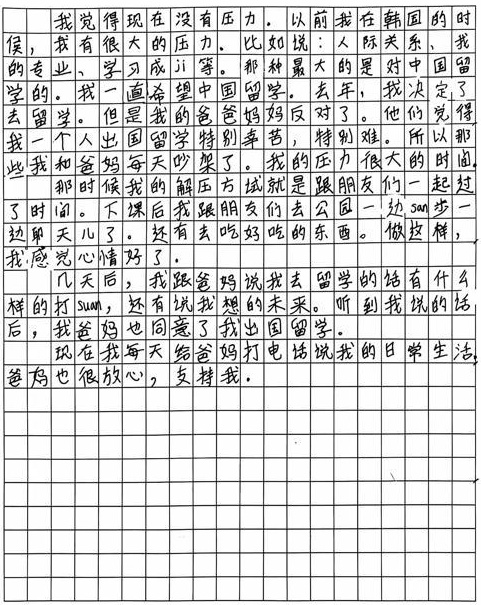 我觉得现在没有压力．以前我在韩国的时
候，我有很大的压力．比如说：人际关系、我
的专业、学习成ji等．那种最大的是对中国留
学的．我一直希望中国留学．去年，我决定了
去留学．但是我的爸爸妈妈反对了．他们觉得
我一个人出国留学特别辛苦，特别难．所以那
些我和爸妈每天吵架了．我的压力很大的时间．
那时候我的解压方试就是跟朋友们一起过
了时间．下课后我跟朋友们去公园一边san步一
边聊天儿了．还有去吃好吃的东西．做这样，
我感觉心情好了．
几天后，我跟爸妈说我去留学的话有什么
样的打suan，还有说我想的未来．听到我说的话
后，我爸妈也同意了我出国留学．
现在我每天给爸妈打电话说我的日常生活．
爸妈也很放心，支持我．